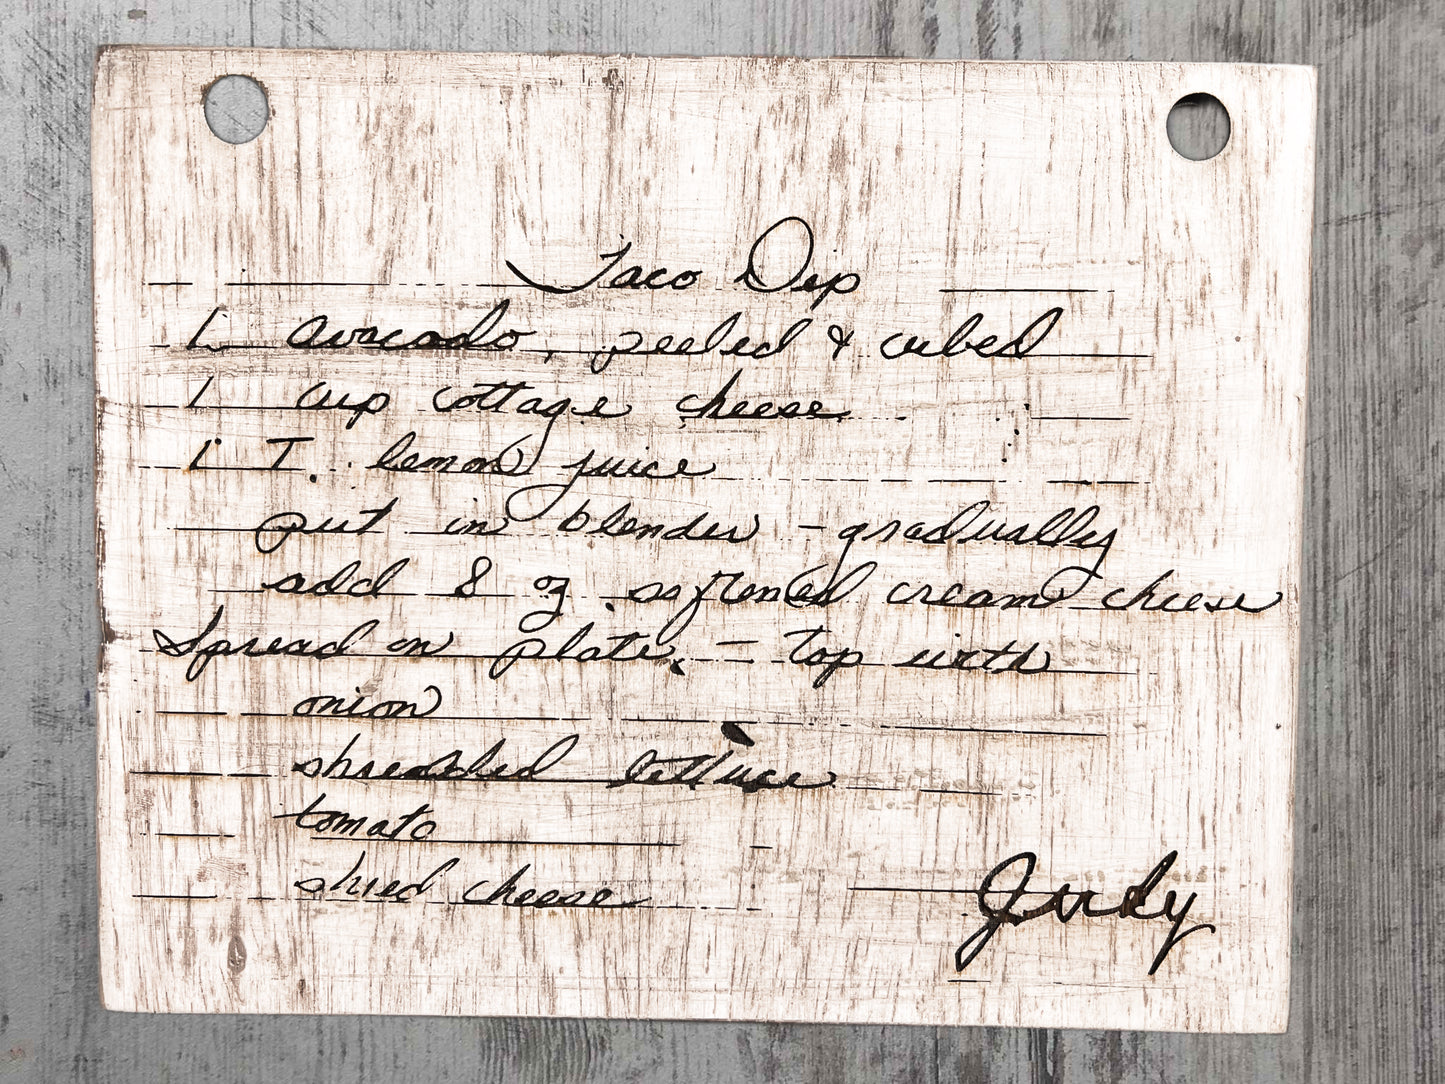 Taco Dip
1 avocado, peeled & cubed
1 cup cottage cheese
1 T. lemon juice
put in blender - gradually
add 8 oz softened cream cheese
Spread on plate, - top with
onion
shredded lettuce
tomato
shred cheese
Judy